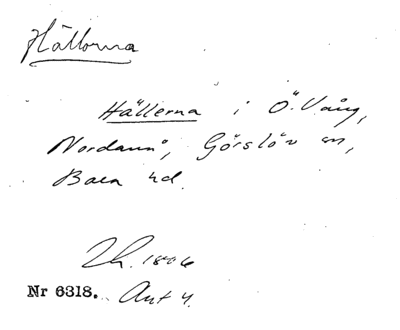 Hällorna
Hällerna i Ö. Vång,
Nordanå, Görslöv sn,
Bara hd.
1806
Nr 6318. Akt 4.